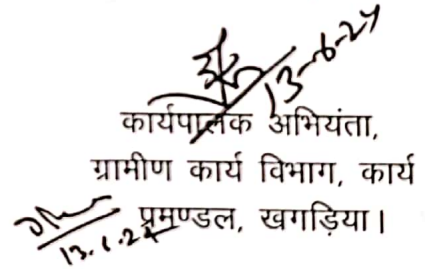 13-6-24
कार्यपालक अभियंता,
ग्रामीण कार्य विभाग, कार्य
प्रमण्डल, खगड़िया।
13.6.24